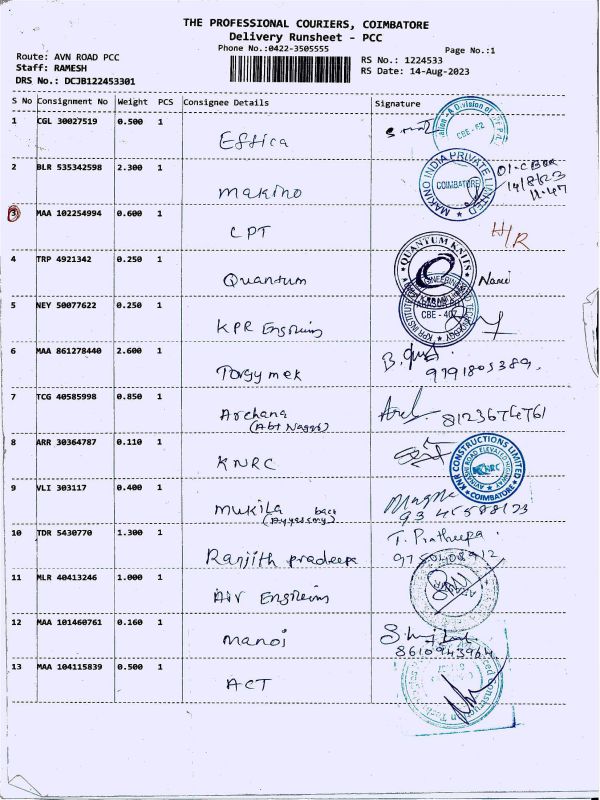 THE PROFESSIONAL COURIERS, COIMBATORE
Delivery Runsheet - PCC
Phone No.:0422-3505555
Page No.:1
Route: AVN ROAD PCC
Staff: RAMESH
DRS No.: DCJB122453301
RS No.: 1224533
RS Date: 14-Aug-2023
S No Consignment No Weight PCS Consignee Details Signature
1 CGL 30027519 0.500 1 Effica
CBE-62
2 BLR 535342598 2.300 1 Makino
MAKINO INDIA PRIVATE LIMITED
COIMBATORE
14/8/23
11-47
3 MAA 102254994 0.600 1 CPT H/R
4 TRP 4921342 0.250 1 Quantum
QUANTUM KNITS
5 NEY 50077622 0.250 1 KPR Engineering
CBE - 407
6 MAA 861278440 2.600 1 Torgymek
9791805389.
7 TCG 40585998 0.850 1 Archana
(Abt Nagar) 8123674761
8 ARR 30364787 0.110 1 KNRC
KNR CONSTRUCTIONS LIMITED
KNRC
COIMBATORE
9 VLI 303117 0.400 1 Mukila
10 TDR 5430770 1.300 1 Ranjith pradeepa
T. Pratheepa.
11 MLR 40413246 1.000 1
12 MAA 101460761 0.160 1 Manoj
8610943964
13 MAA 104115839 0.500 1 ACT